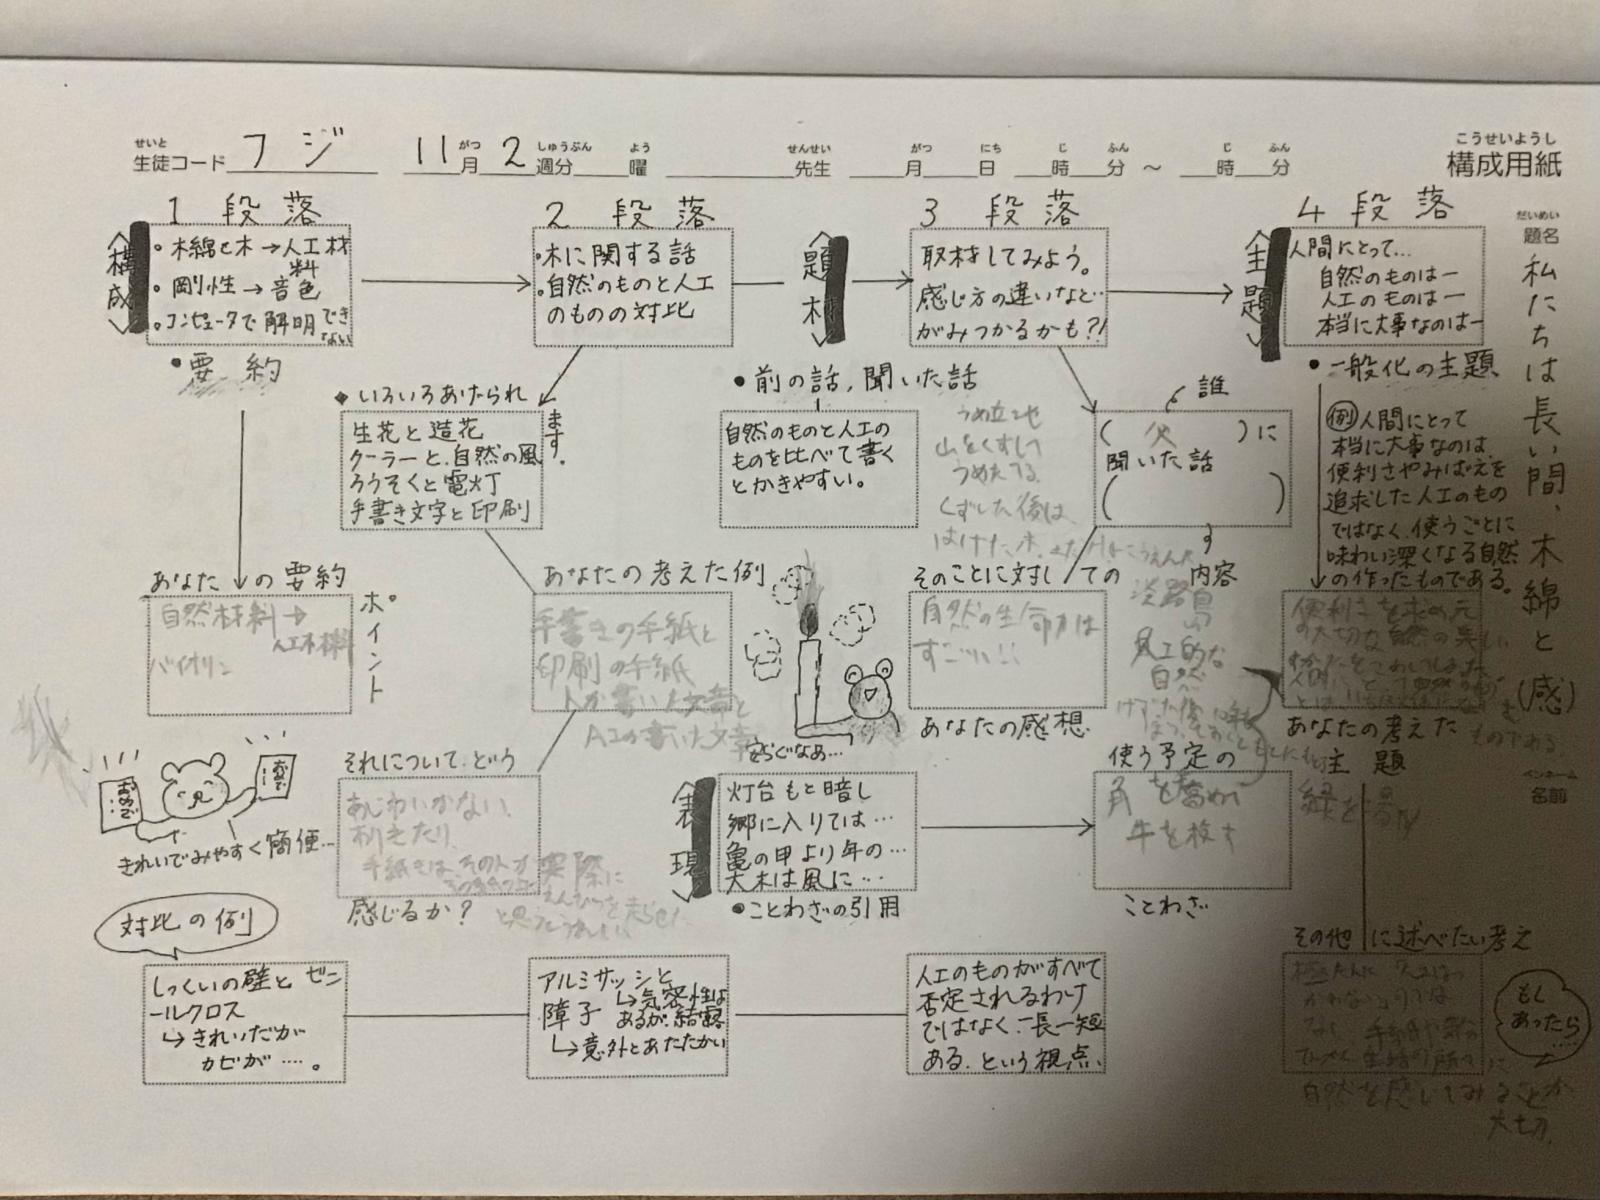 せいと
生徒コード フジ 11月 2週分 曜 先生 月 日 時 分 ～ 時 分
がつ しゅうぶん よう せんせい がつ にち じ ふん じ ふん
こうせいようし
構成用紙
だいめい
題名
私たちは長い間、木綿と(感)
ペンネーム
名前
1段落
〈構成〉
・木綿と木→人工材料
・剛性→音色
・コンピュータで解明できない
・要約
あなたの要約
自然材料→
人工材料
バイオリン
ポイント
2段落
・木に関する話
・自然のものと人工
のものの対比
・いろいろあげられ
ます。
生花と造花
クーラーと、自然の風
ろうそくと電灯
手書き文字と印刷
あなたの考えた例
手書きの手紙と
印刷の手紙
人が書いた文章と
AIの書いた文章
それについて、どう
あじわいがない、
手紙は、その人が
実際に
感じるか？
〈題材〉
・前の話、聞いた話
自然のものと人工の
ものを比べて書く
とかきやすい。
3段落
取材してみよう。
感じ方の違いなど…
がみつかるかも?!
誰
(父)に
聞いた話
( )
す
内容
うめ立て地
山をくずして
うめたてる
くずした後は、
はげた木、
淡路島
人工的な
自然
そのことに対しての
自然の生命力は
すごい!!
あなたの感想
安らぐなあ…
〈表現〉
灯台もと暗し
郷に入りては…
亀の甲より年の…
大木は風に…
・ことわざの引用
使う予定の
角を矯めて
牛を殺す
ことわざ
4段落
〈主題〉
人間にとって…
自然のものはー
人工のものはー
本当に大事なのはー
・一般化の主題
例 人間にとって
本当に大事なのは、
便利さやみばえを
追求した人工のもの
ではなく、使うごとに
味わい深くなる自然
の作ったものである。
便利さを求め元
の大切な自然の美しい
ものである
あなたの考えた
主題
その他に述べたい考え
もし
あったら
……
自然を感じてみることが
大切
おめで
とー！
おめで
とー！
きれいでみやすく簡便…
対比の例
しっくいの壁とビニ
ールクロス
↳きれいだが
カビが……。
アルミサッシと
障子
↳気密性は
あるが、結露
↳意外とあたたかい
人工のものがすべて
否定されるわけ
ではなく、一長一短
ある、という視点、